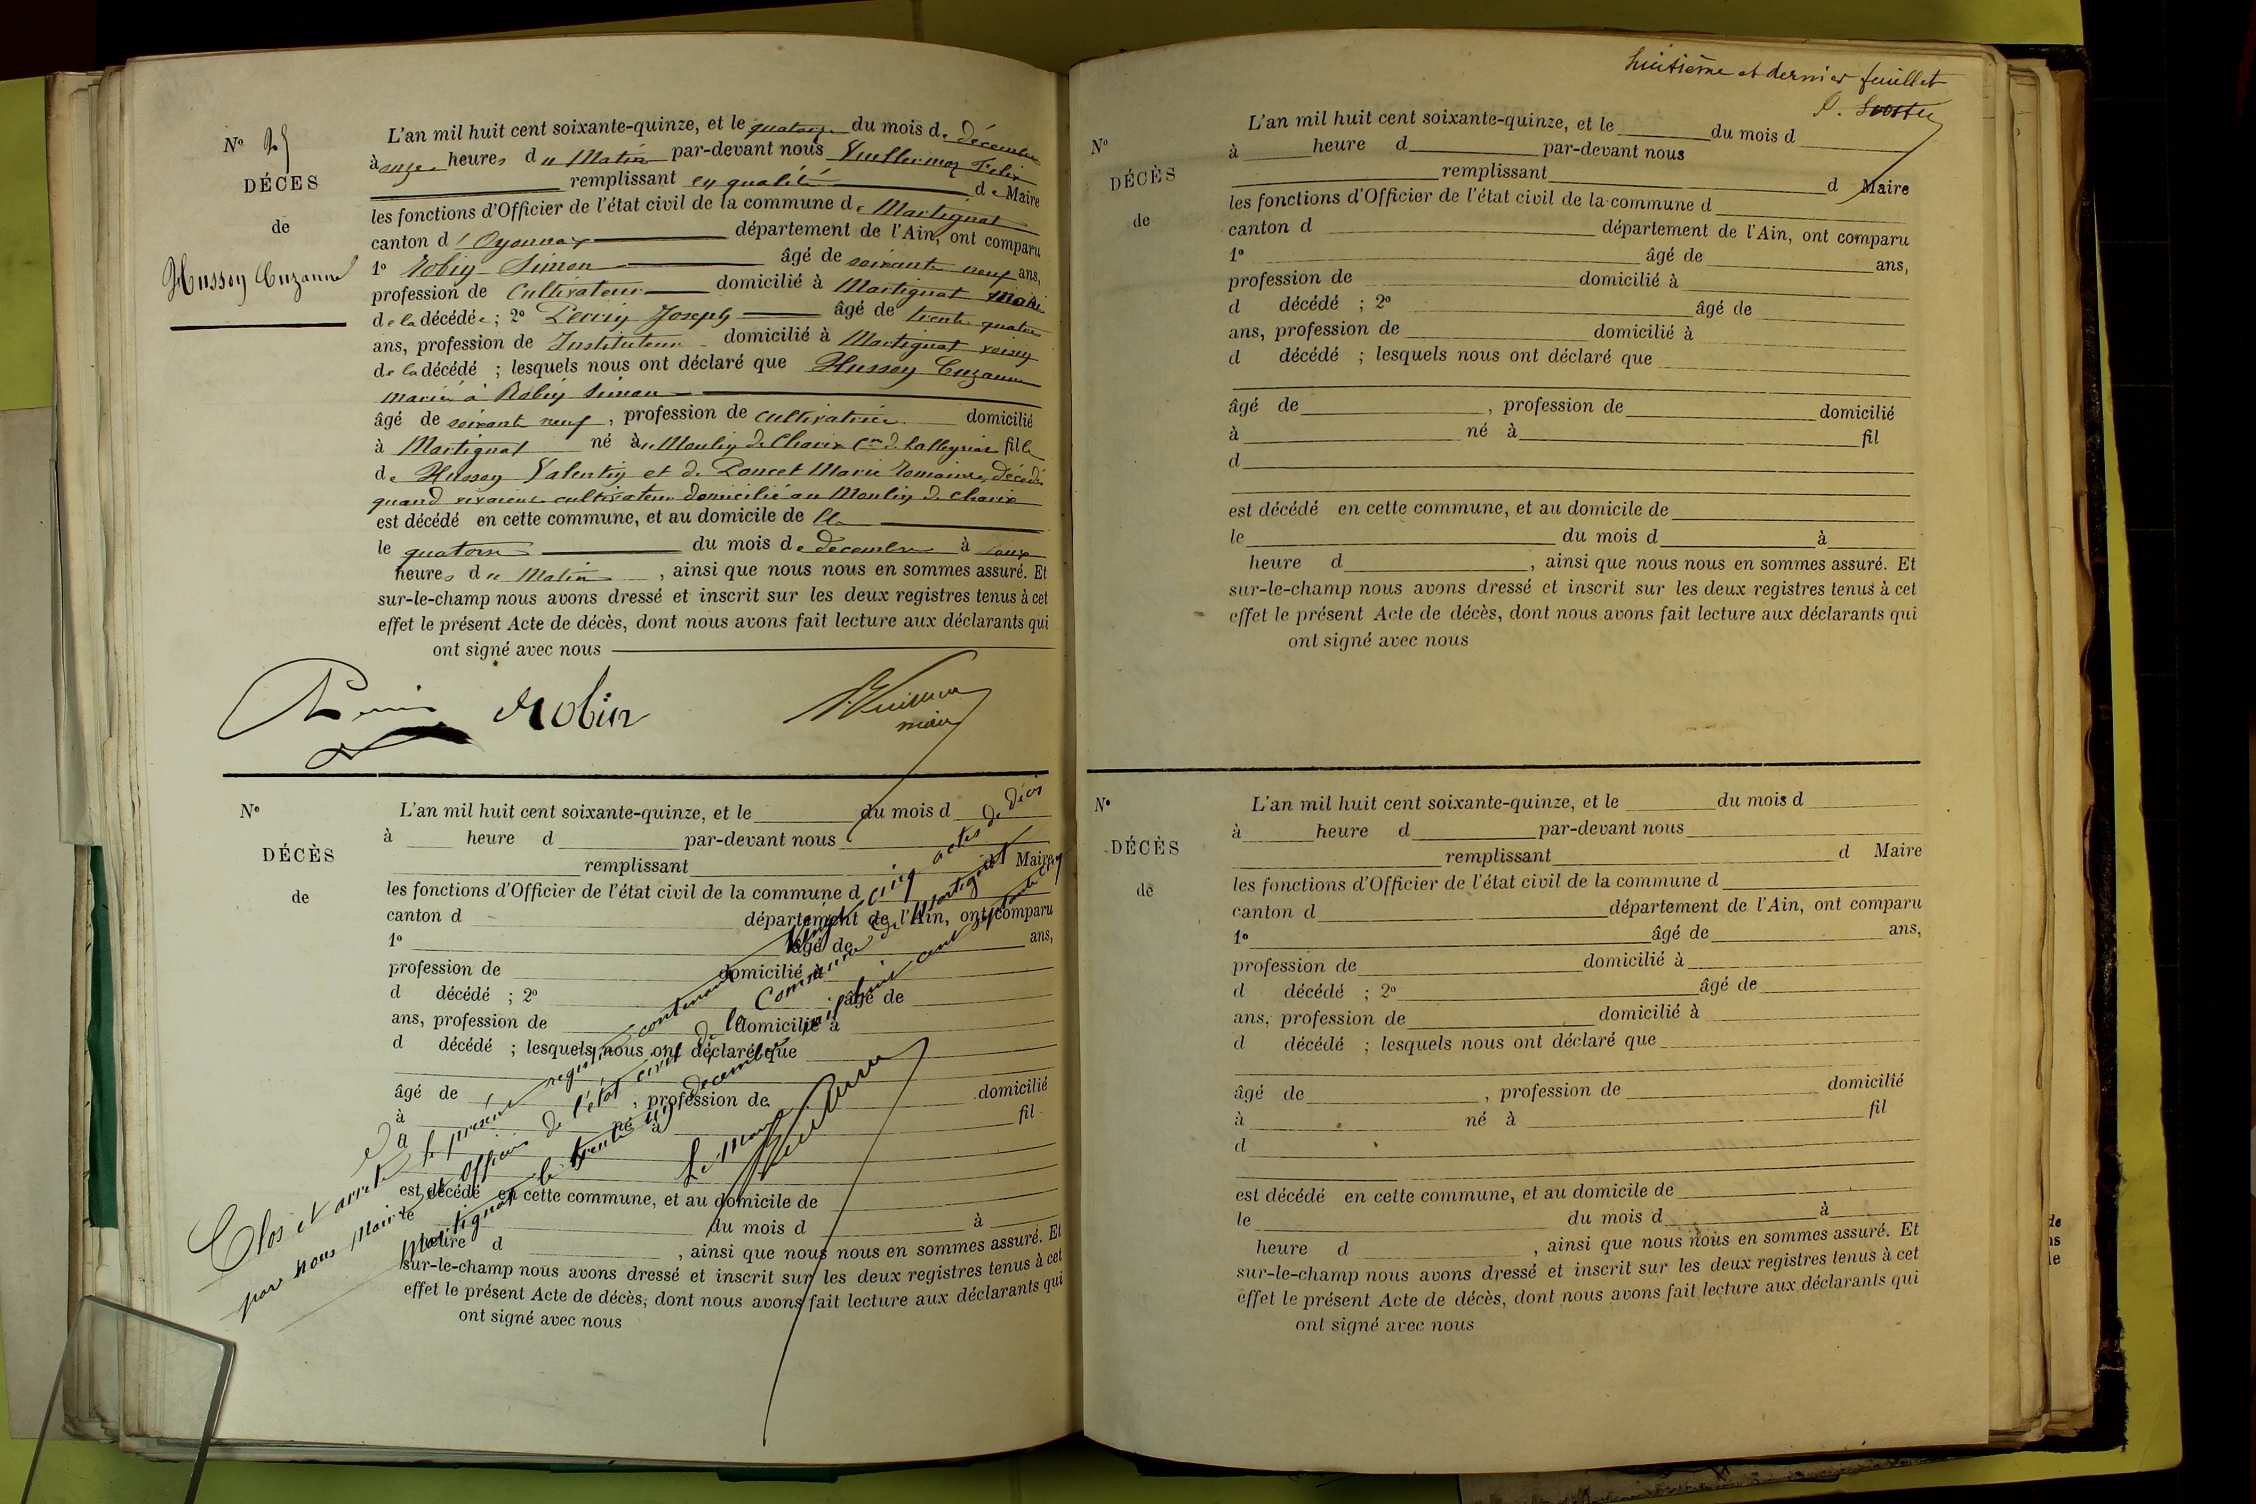 N° 25
DÉCÈS
de
Hussoy Suzanne
L'an mil huit cent soixante-quinze, et le quatorze du mois de décembre
à onze heures du Matin par-devant nous Vuillermoz Felix
remplissant en qualité de Maire
les fonctions d'Officier de l'état civil de la commune de Martignat
canton d'Oyonnax département de l'Ain, ont comparu
1° Robin Simon âgé de soixante neuf ans,
profession de Cultivateur domicilié à Martignat Mari
de la décédée ; 2° Perrin Joseph âgé de trente quatre
ans, profession de Instituteur domicilié à Martignat voisin
de la décédé ; lesquels nous ont déclaré que Hussoy Suzanne
mariée à Robin Simon
âgé de soixant neuf, profession de cultivatrice domicilié
à Martignat né au Moulin de Charix Cne de Lalleyriat fille
de Hussoy Valentin et de Poncet Marie Romaine, décédés
quand vivaient cultivateurs domicilié au Moulin de Charix
est décédé en cette commune, et au domicile de
le quatorze du mois de décembre à onze
heures du Matin, ainsi que nous nous en sommes assuré. Et
sur-le-champ nous avons dressé et inscrit sur les deux registres tenus à cet
effet le présent Acte de décès, dont nous avons fait lecture aux déclarants qui
ont signé avec nous
Perrin Robin
maire
N°
DÉCÈS
de
L'an mil huit cent soixante-quinze, et le du mois d
à heure d par-devant nous
remplissant d Maire
les fonctions d'Officier de l'état civil de la commune d
canton d département de l'Ain, ont comparu
1° âgé de ans,
profession de domicilié à
d décédé ; 2° âgé de
ans, profession de domicilié à
d décédé ; lesquels nous ont déclaré que
âgé de , profession de domicilié
à né à fil
d
est décédé en cette commune, et au domicile de
le du mois d à
heure d , ainsi que nous nous en sommes assuré. Et
sur-le-champ nous avons dressé et inscrit sur les deux registres tenus à cet
effet le présent Acte de décès, dont nous avons fait lecture aux déclarants qui
ont signé avec nous
Clos et arrêté le présent registre contenant vingt cinq actes de décès
par nous Maire et Officier de l'état civil de la Commune de Martignat
Martignat le trente un décembre mil huit cent
Le Maire
huitième et dernier feuillet
N°
DÉCÈS
de
L'an mil huit cent soixante-quinze, et le du mois d
à heure d par-devant nous
remplissant d Maire
les fonctions d'Officier de l'état civil de la commune d
canton d département de l'Ain, ont comparu
1° âgé de ans,
profession de domicilié à
d décédé ; 2° âgé de
ans, profession de domicilié à
d décédé ; lesquels nous ont déclaré que
âgé de , profession de domicilié
à né à fil
d
est décédé en cette commune, et au domicile de
le du mois d à
heure d , ainsi que nous nous en sommes assuré. Et
sur-le-champ nous avons dressé et inscrit sur les deux registres tenus à cet
effet le présent Acte de décès, dont nous avons fait lecture aux déclarants qui
ont signé avec nous
N°
DÉCÈS
de
L'an mil huit cent soixante-quinze, et le du mois d
à heure d par-devant nous
remplissant d Maire
les fonctions d'Officier de l'état civil de la commune d
canton d département de l'Ain, ont comparu
1° âgé de ans,
profession de domicilié à
d décédé ; 2° âgé de
ans, profession de domicilié à
d décédé ; lesquels nous ont déclaré que
âgé de , profession de domicilié
à né à fil
d
est décédé en cette commune, et au domicile de
le du mois d à
heure d , ainsi que nous nous en sommes assuré. Et
sur-le-champ nous avons dressé et inscrit sur les deux registres tenus à cet
effet le présent Acte de décès, dont nous avons fait lecture aux déclarants qui
ont signé avec nous